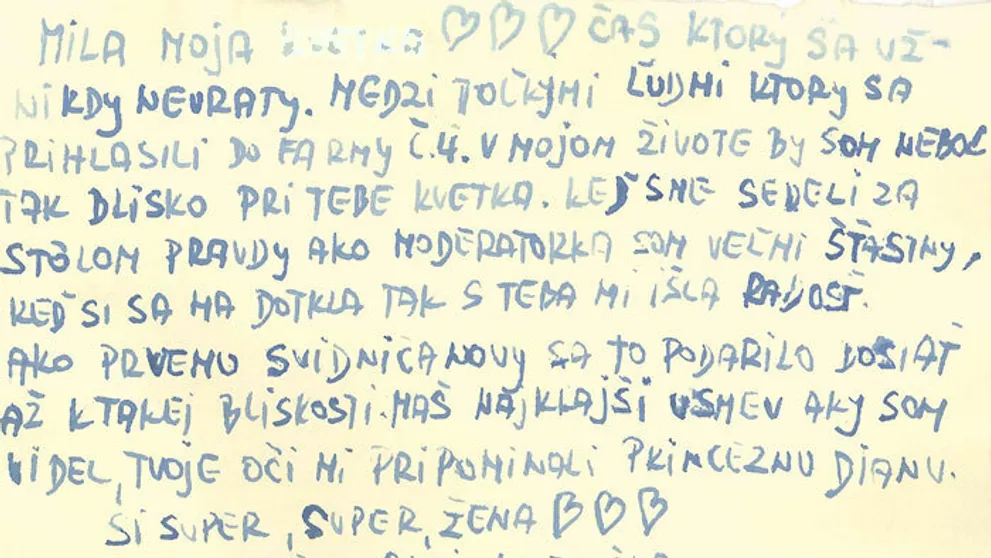 MILA MOJA ♡♡♡ ČAS KTORÝ SA UŽ-
NIKDY NEVRATY. MEDZI TOĽKÝMI ĽUĎMI KTORY SA
PRIHLASILI DO FARMY Č.4. V MOJOM ŽIVOTE BY SOM NEBOL
TAK BLISKO PRI TEBE KVETKA. KEĎ SME SEDELI ZA
STOLOM PRAVDY AKO MODERATORKA SOM VEĽMI ŠŤASTNY,
KEĎ SI SA MA DOTKLA TAK S TEBA MI IŠLA RADOSŤ.
AKO PRVEMU SVIDNIČANOVY SA TO PODARILO DOSIAŤ
AŽ K TAKEJ BLISKOSTI. MAŠ NAJKLAJŠI USMEV AKY SOM
VIDEL, TVOJE OČI MI PRIPOMINALI PRINCEZNU DIANU.
SI SUPER, SUPER, ŽENA ♡♡♡